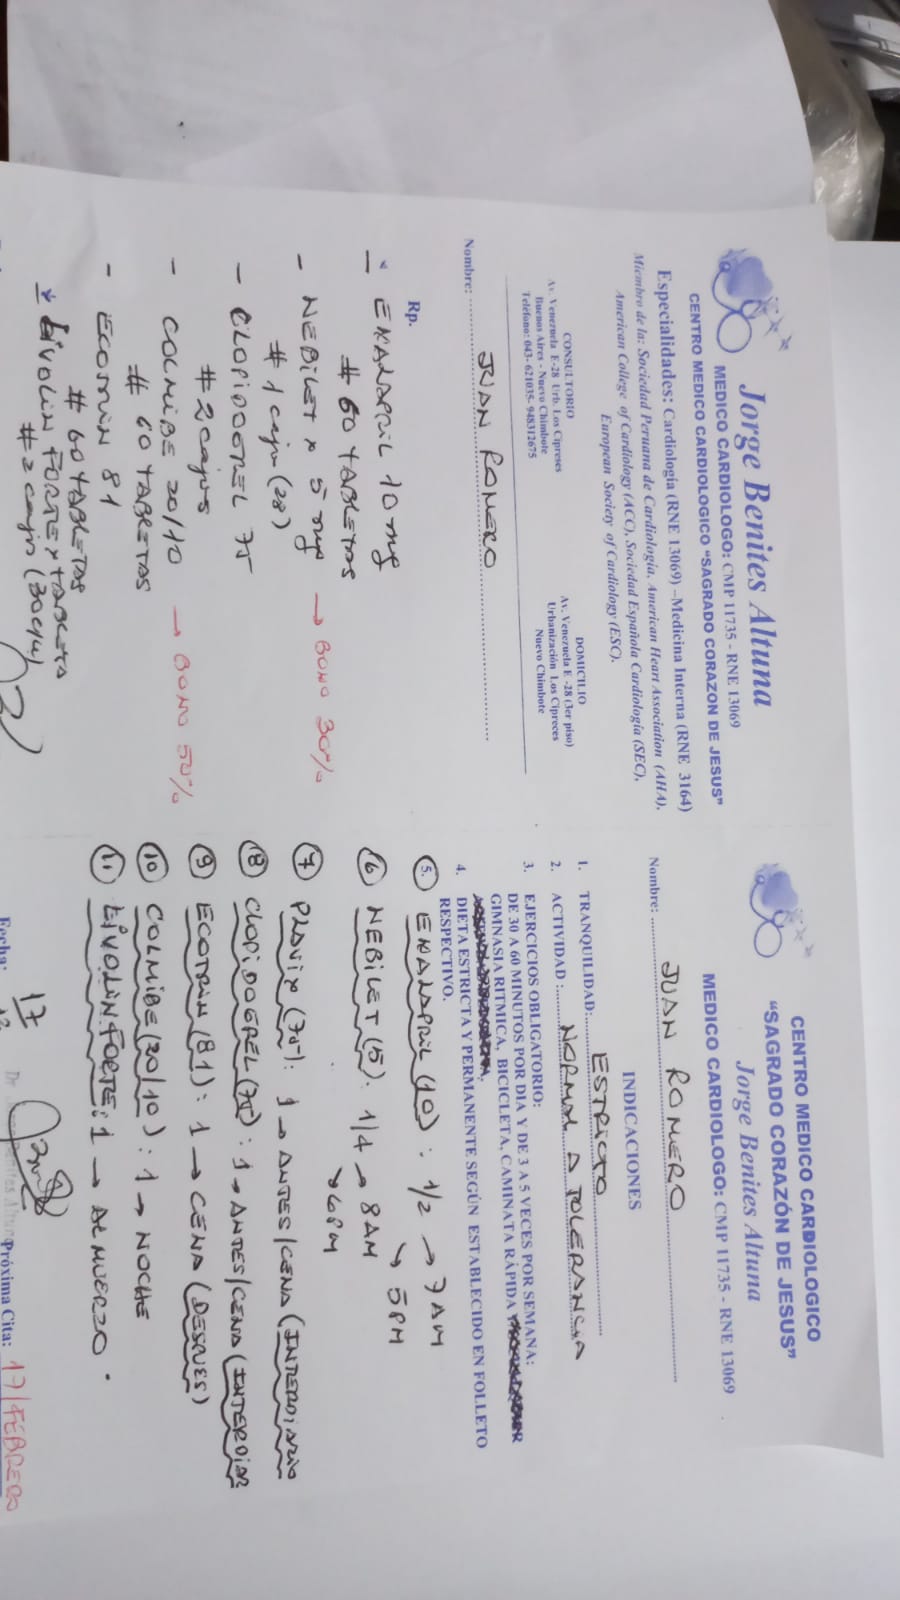 Jorge Benites Altuna
MEDICO CARDIOLOGO: CMP 11735 - RNE 13069
CENTRO MEDICO CARDIOLOGICO "SAGRADO CORAZON DE JESUS"
Especialidades: Cardiología (RNE 13069) –Medicina Interna (RNE 3164)
Miembro de la: Sociedad Peruana de Cardiología, American Heart Association (AHA),
American College of Cardiology (ACC), Sociedad Española Cardiología (SEC),
European Society of Cardiology (ESC).
CONSULTORIO
Av. Venezuela E-28 Urb. Los Cipreses
Buenos Aires - Nuevo Chimbote
Telefono: 043- 621035- 948312675
DOMICILIO
Av. Venezuela E -28 (3er piso)
Urbanización Los Cipreces
Nuevo Chimbote
Nombre: JUAN ROMERO
Rp.
- ENANAPRIL 10 mg
# 60 TABLETAS
- NEBILET x 5 mg → BONO 30%
# 1 caja (28)
- CLOPIDOGREL 75
# 2 cajas
- COLMIBE 20/10 → BONO 50%
# 60 TABLETAS
- ECOTRIN 81
# 60 TABLETAS
LIVOLIN FORTE x TABLETA
# 2 cajas (30 c/u)
CENTRO MEDICO CARDIOLOGICO
"SAGRADO CORAZÓN DE JESUS"
Jorge Benites Altuna
MEDICO CARDIOLOGO: CMP 11735 - RNE 13069
Nombre: JUAN ROMERO
INDICACIONES
1. TRANQUILIDAD: ESTRICTO
2. ACTIVIDAD : NORMAL A TOLERANCIA
3. EJERCICIOS OBLIGATORIO:
DE 30 A 60 MINUTOS POR DIA Y DE 3 A 5 VECES POR SEMANA:
GIMNASIA RITMICA, BICICLETA, CAMINATA RÁPIDA
4. DIETA ESTRICTA Y PERMANENTE SEGÚN ESTABLECIDO EN FOLLETO
RESPECTIVO.
5. ENANAPRIL (10) : 1/2 → 7 AM
↘ 5 PM
6 NEBILET (5) : 1/4 → 8 AM
↘ 6 PM
7 PLAVIX (75) : 1 → ANTES/CENA (INTERDIARIO
8 CLOPIDOGREL (75) : 1 → ANTES/CENA (INTERDIAR
9 ECOTRIN (81) : 1 → CENA (DESPUES)
10 COLMIBE (20/10) : 1 → NOCHE
11 LIVOLIN FORTE : 1 → ALMUERZO.
Fecha: 17
Próxima Cita: 17/FEBRERO